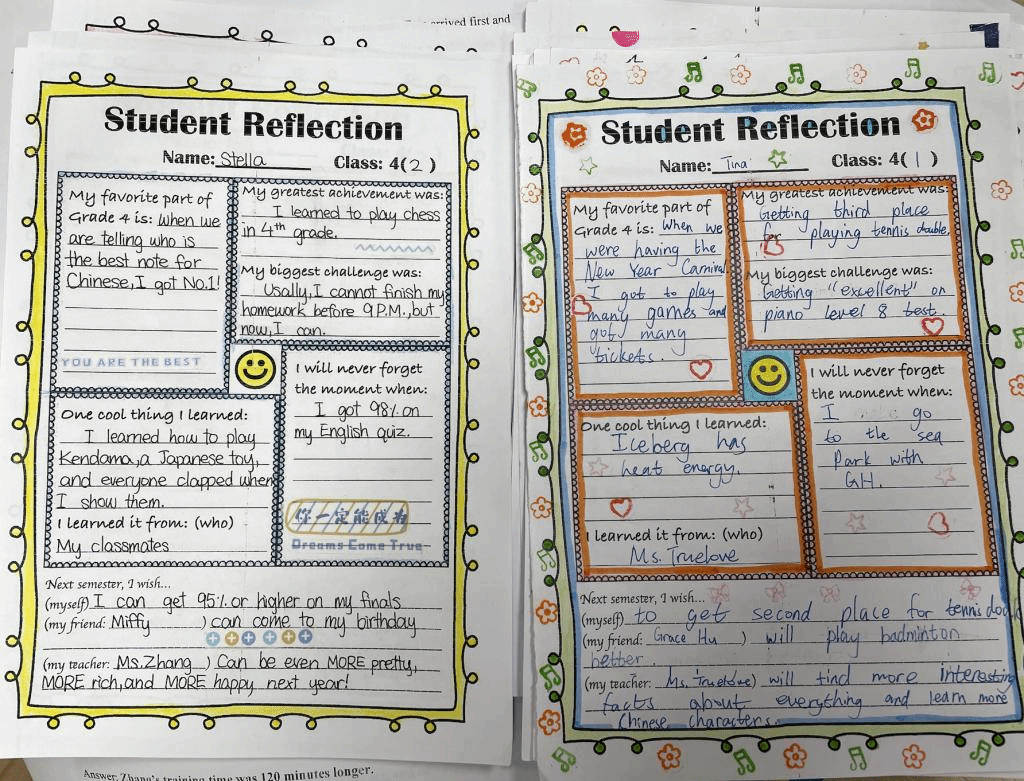 arrived first and
Student Reflection
Name: Stella Class: 4(2)
My favorite part of
Grade 4 is: when we
are telling who is
the best note for
Chinese, I got No.1!
YOU ARE THE BEST
My greatest achievement was:
I learned to play chess
in 4th grade.
My biggest challenge was:
Usally, I cannot finish my
homework before 9 P.M., but
now, I can.
One cool thing I learned:
I learned how to play
Kendama, a Japanese toy,
and everyone clapped when
I show them.
I learned it from: (who)
My classmates
I will never forget
the moment when:
I got 98% on
my English quiz.
你一定能成为
Dreams Come True
Next semester, I wish...
(myself) I can get 95% or higher on my finals
(my friend: Miffy ) can come to my birthday
(my teacher: Ms. Zhang ) Can be even MORE pretty,
MORE rich, and MORE happy next year!
Answer: Zhang's training time was 120 minutes longer.
Student Reflection
Name: Tina Class: 4(1)
My favorite part of
Grade 4 is: When we
were having the
New Year Carnival
I got to play
many games and
got many
tickets.
My greatest achievement was:
Getting third place
for playing tennis double.
My biggest challenge was:
Getting "excellent" on
piano level 8 test.
One cool thing I learned:
Iceberg has
heat energy.
I learned it from: (who)
Ms. Truelove
I will never forget
the moment when:
I go
to the sea
Park with
GH.
Next semester, I wish...
(myself) to get second place for tennis
(my friend: Grace Hu ) will play badminton
better.
(my teacher: Ms. Truelove) will find more interesting
facts about everything and learn more
Chinese characters.